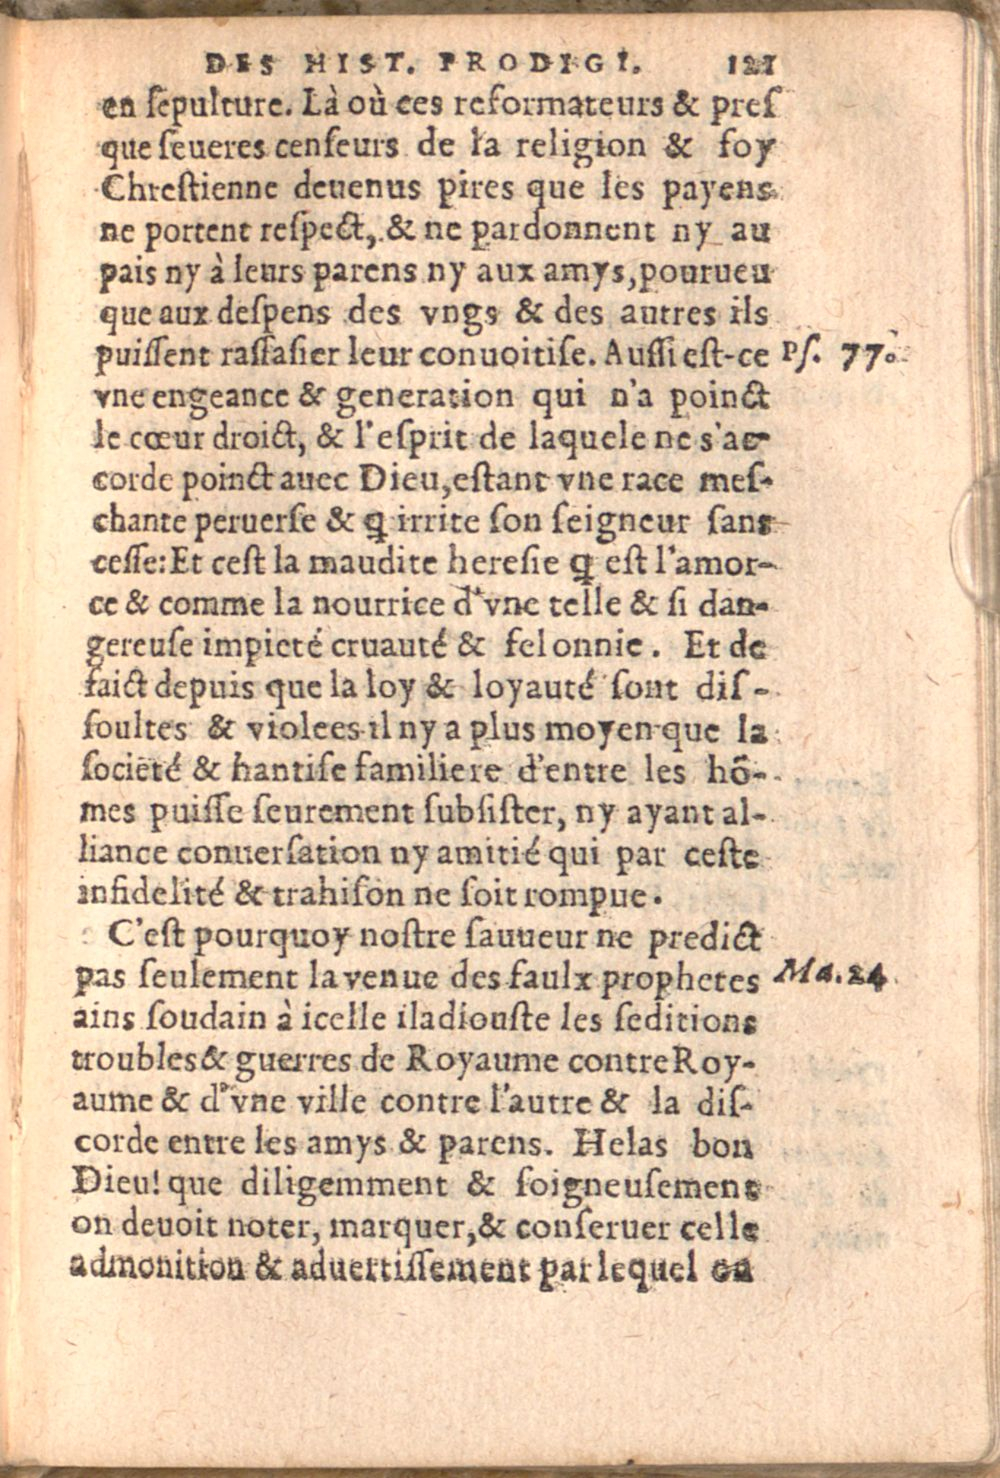 DES HIST. PRODIGI. 121
en ſepulture. Là où ces reformateurs & preſ
que ſeueres cenſeurs de la religion & foy
Chreſtienne deuenus pires que les payens
ne portent reſpect, & ne pardonnent ny au
pais ny à leurs parens ny aux amys, pourueu
que aux deſpens des vngs & des autres ils
puiſſent raſſaſier leur conuoitiſe. Auſſi est-ce Pſ. 77.
vne engeance & generation qui n'a poinct
le cœur droict, & l'eſprit de laquele ne s'ac-
corde poinct auec Dieu, estant vne race meſ-
chante peruerſe & ꝗ irrite ſon ſeigneur ſans
ceſſe: Et cest la maudite hereſie ꝗ est l'amor-
ce & comme la nourrice d'vne telle & ſi dan-
gereuſe impieté cruauté & felonnie. Et de
faict depuis que la loy & loyauté ſont diſ-
ſoultes & violees il ny a plus moyen que la
ſocieté & hantiſe familiere d'entre les hõ-
mes puiſſe ſeurement ſubſiſter, ny ayant al-
liance conuerſation ny amitié qui par ceſte
infidelité & trahiſon ne ſoit rompue.
C'eſt pourquoy noſtre ſauueur ne predict
pas ſeulement la venue des faulx prophetes Ma. 24
ains ſoudain à icelle il adiouſte les ſeditions
troubles & guerres de Royaume contre Roy-
aume & d'vne ville contre l'autre & la diſ-
corde entre les amys & parens. Helas bon
Dieu! que diligemment & ſoigneuſement
on deuoit noter, marquer, & conſeruer celle
admonition & aduertiſſement par lequel on